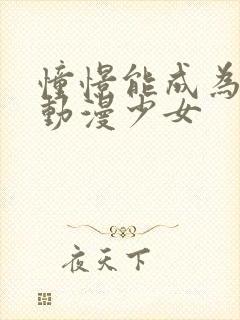 憧憬能成為
動漫少女
夜天下